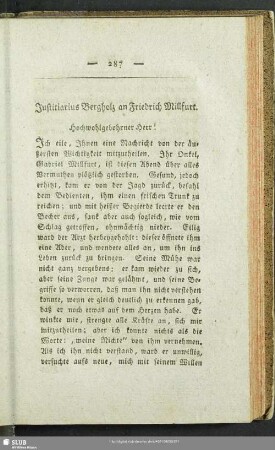 — 287 —
Justitiarius Bergholz an Friedrich Millfurt.
Hochwohlgebohrner Herr!
Ich eile, Ihnen eine Nachricht von der äu-
ßersten Wichtigkeit mitzutheilen. Ihr Onkel,
Gabriel Millfurt, ist diesen Abend über alles
Vermuthen plözlich gestorben. Gesund, jedoch
erhitzt, kam er von der Jagd zurück, befahl
dem Bedienten, ihm einen frischen Trunk zu
reichen; und mit heisser Begierde leerte er den
Becher aus, sank aber auch sogleich, wie vom
Schlag getroffen, ohnmächtig nieder. Eilig
ward der Arzt herbeygehohlt: dieser öffnete ihm
eine Ader, und wendete alles an, um ihn ins
Leben zurück zu bringen. Seine Mühe war
nicht ganz vergebens; er kam wieder zu sich,
aber seine Zunge war gelähmt, und seine Be-
griffe so verworren, daß man ihn nicht verstehen
konnte, wenn er gleich deutlich zu erkennen gab,
daß er noch etwas auf dem Herzen habe. Er
winkte mir, strengte alle Kräfte an, sich mir
mitzutheilen; aber ich konnte nichts als die
Worte: „meine Nichte" von ihm vernehmen.
Als ich ihn nicht verstand, ward er unwillig,
versuchte aufs neue, mich mit seinem Willen
SLUB